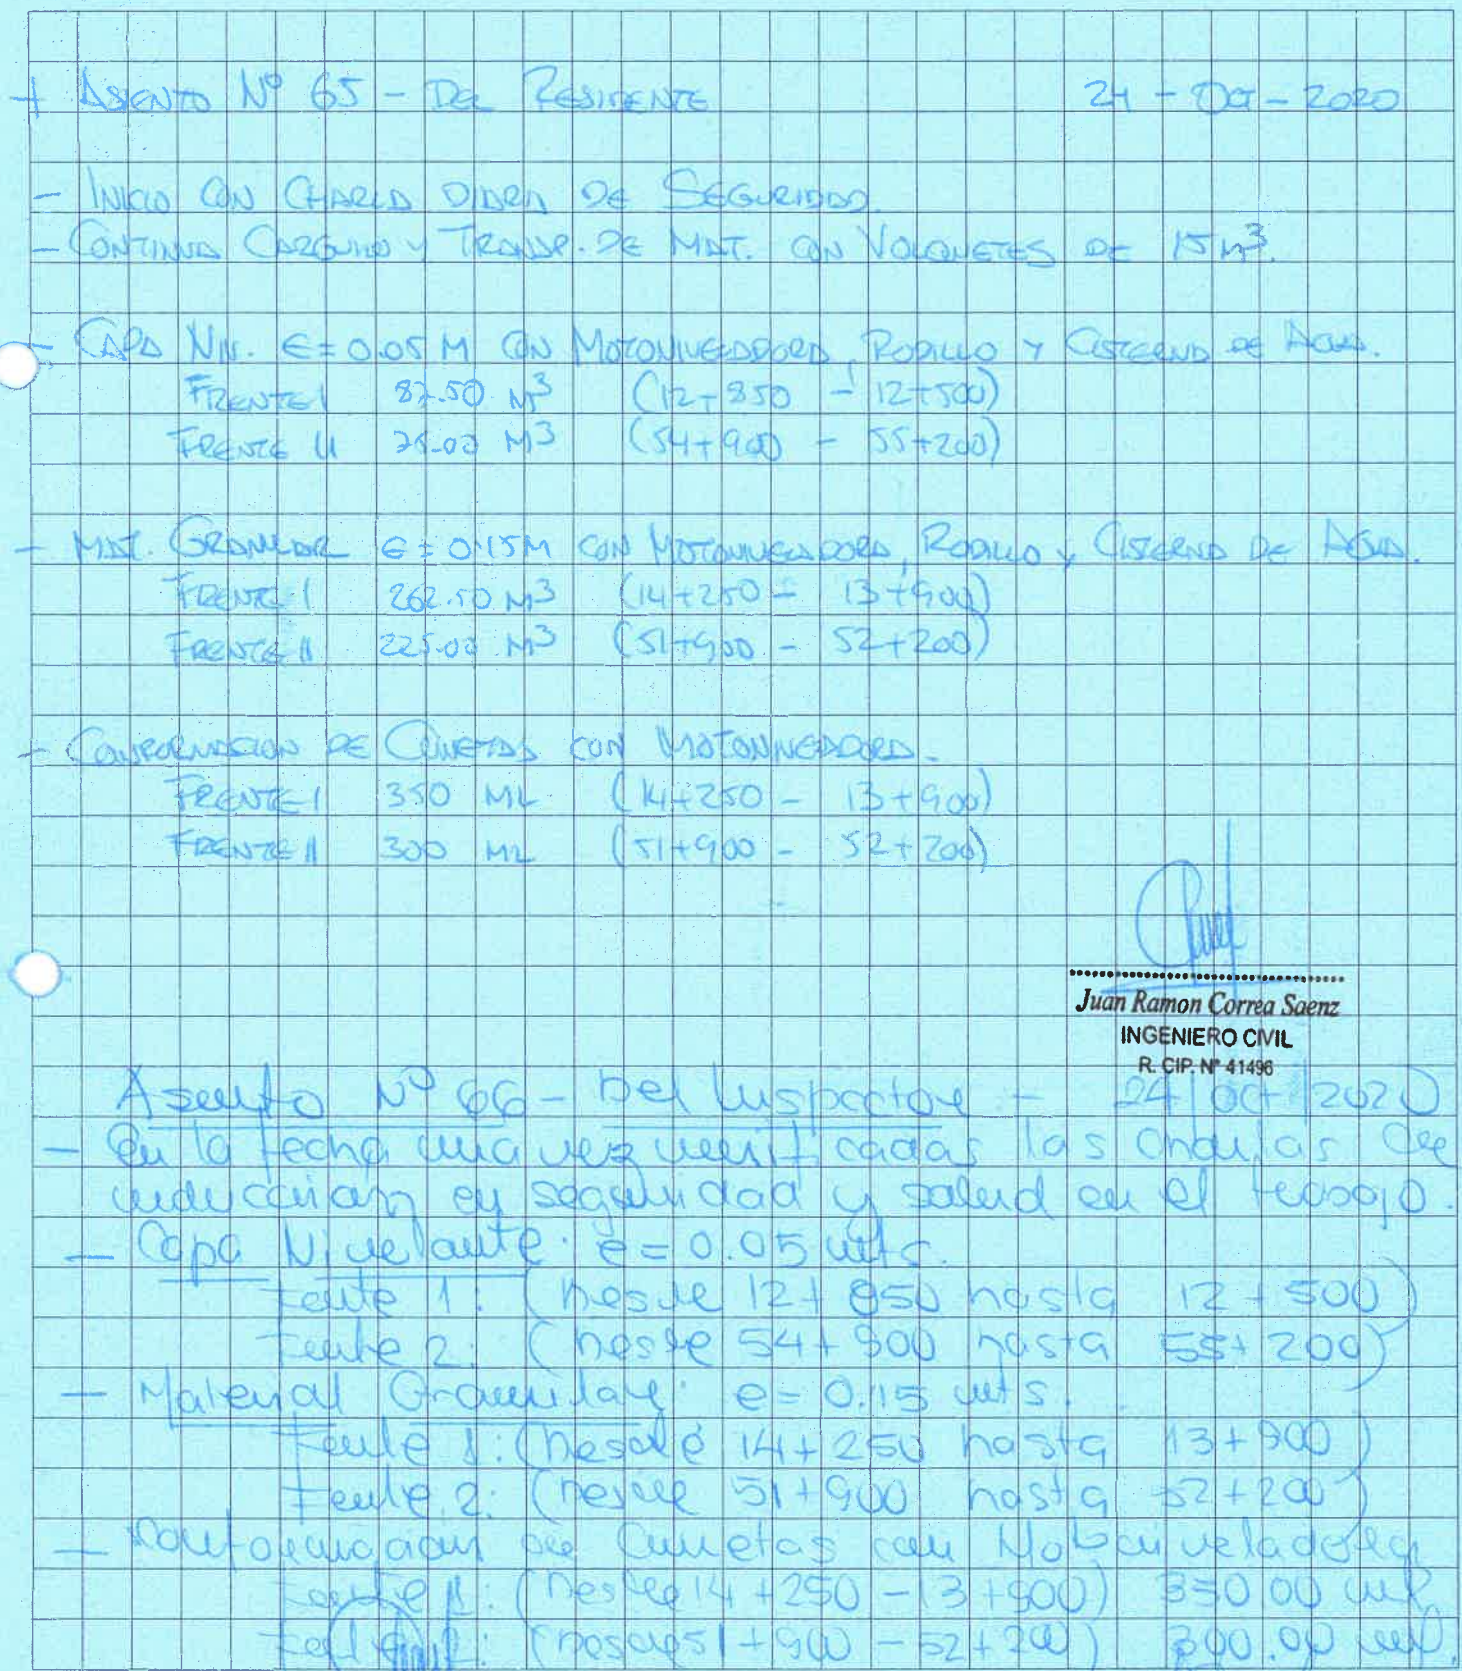 + ASIENTO Nº 65 - DEL RESIDENTE 24 - OCT - 2020
- INICIO CON CHARLA DIARIA DE SEGURIDAD.
- CONTINUA CARGUIO Y TRANSP. DE MAT. CON VOLQUETES DE 15 M³.
- CAPA NIV. E= 0.05 M CON MOTONIVELADORA, RODILLO Y CISTERNA DE AGUA.
FRENTE I 87.50 M³ (12+850 - 12+500)
FRENTE II 75.00 M³ (54+900 - 55+200)
- MAT. GRANULAR E= 0.15M CON MOTONIVELADORA, RODILLO Y CISTERNA DE AGUA.
FRENTE I 262.50 M³ (14+250 - 13+900)
FRENTE II 225.00 M³ (51+900 - 52+200)
- CONFORMACION DE CUNETAS CON MOTONIVELADORA.
FRENTE I 350 ML (14+250 - 13+900)
FRENTE II 300 ML (51+900 - 52+200)
Juan Ramon Correa Saenz
INGENIERO CIVIL
R. CIP. Nº 41496
Asiento Nº 66 - Del Inspector - 24/oct/2020
- En la fecha una vez verificadas las charlas de
inducción en seguridad y salud en el trabajo.
- Capa Nivelante: e= 0.05 mts.
Frente 1: (Desde 12+850 hasta 12+500)
Frente 2: (Desde 54+900 hasta 55+200)
- Material Granular: e= 0.15 mts.
Frente 1: (Desde 14+250 hasta 13+900)
Frente 2: (Desde 51+900 hasta 52+200)
- Conformacion de Cunetas con Motoniveladora
Frente 1: (Desde 14+250 - 13+900) 350.00 ml
Frente 2: (Desde 51+900 - 52+200) 300.00 ml.